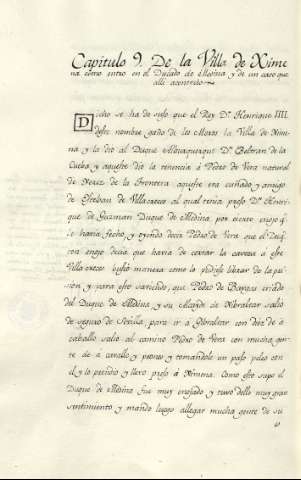 Capitulo 9. De la Villa de Xime
na como entro en el Ducado de Medina y de un caso que
alli acontecio
Dicho se ha de suso que el Rey Dn. Henrique IIII.
deste nombre gano de los Moros la Villa de Xim-
na y la dio al Duque Albuquerque Dn. Beltran de la
Cueba y aqueste dio la tenencia a Pedro de Vera natural
de Xerez de la Frontera aqueste era cuñado y amigo
de Esteban de Villacreces al qual tenia preso Dn. Henri-
que de Guzman Duque de Medina, por cierto enojo q.
le havia fecho, y oyendo decir Pedro de Vera que el Duq.
con enojo decia que havia de cortar la caveza a este
Villacreces busco manera como lo pudiese librar de la pri-
sion y para esto sucedio, que Pedro de Bargas criado
del Duque de Medina y su Alcayde de Gibraltar salio
de seguro de Sevilla para ir a Gibraltar con diez de a
caballo salio al camino Pedro de Vera con mucha gen-
te de a cavallo y peones y tomandole un paso peleo con
el y lo prendio y llevo preso a Ximena. Como esto supo el
Duque de Medina fue muy enojado y tuvo dello muy gran
sentimiento y mando luego allegar mucha gente de su